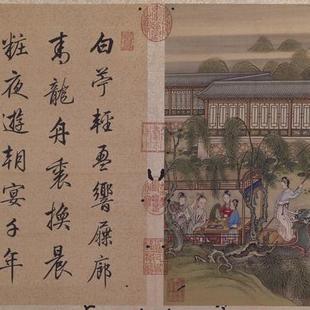 白苧輕盈響屧廊
東龍舟裏換晨
粧夜遊朝宴千年